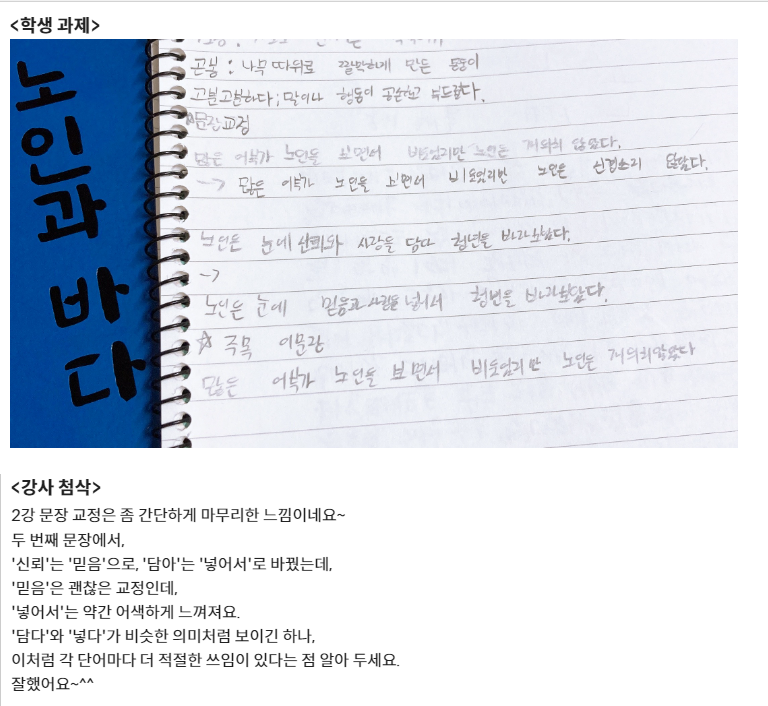 <학생 과제>
노인과 바다
곤봉 : 나무 따위로 짤막하게 만든 몽둥이
고분고분하다; 말이나 행동이 공손하고 부드럽다.
문장교정
많은 어부가 노인을 보면서 비웃었지만 노인은 개의치 않았다.
-> 많은 어부가 노인을 보면서 비웃었지만 노인은 신경쓰지 않았다.
노인은 눈에 신뢰와 사랑을 담아 청년을 바라보았다.
->
노인은 눈에 믿음과 사랑을 넣어서 청년을 바라보았다.
☆ 주목 이문장
많은 어부가 노인을 보면서 비웃었지만 노인은 개의치않았다
<강사 첨삭>
2강 문장 교정은 좀 간단하게 마무리한 느낌이네요~
두 번째 문장에서,
'신뢰'는 '믿음'으로, '담아'는 '넣어서'로 바꿨는데,
'믿음'은 괜찮은 교정인데,
'넣어서'는 약간 어색하게 느껴져요.
'담다'와 '넣다'가 비슷한 의미처럼 보이긴 하나,
이처럼 각 단어마다 더 적절한 쓰임이 있다는 점 알아 두세요.
잘했어요~^^